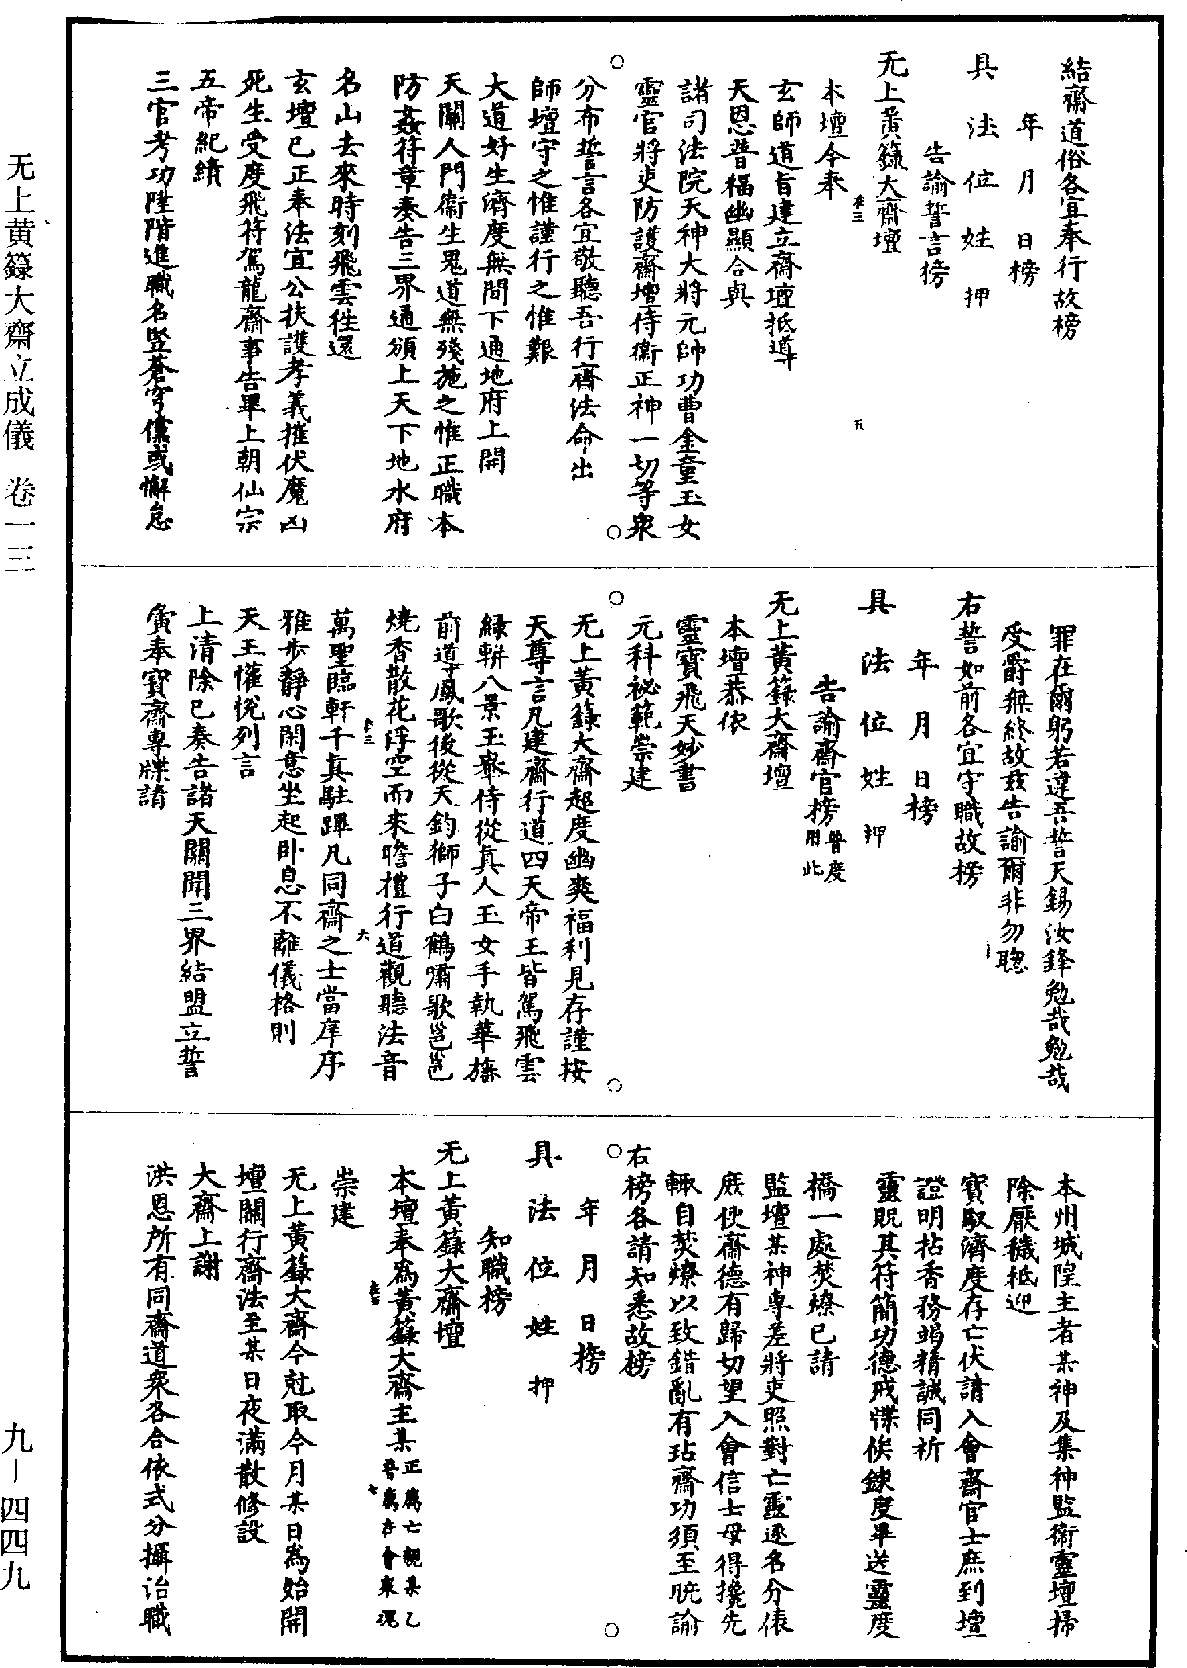 結齋道俗各宜奉行故榜
年月日榜
具法位姓押
告諭誓言榜
无上黃籙大齋壇
本壇今奉
玄師道旨建立齋壇抵導
天恩普福幽顯合與
諸司法院天神大將元帥功曹金童玉女
靈官將吏防護齋壇侍衛正神一切等衆
分布誓言各宜敬聽吾行齋法命出
師壇守之惟謹行之惟艱
大道好生濟度無間下通地府上開
天關人門衛生鬼道無殘施之惟正職本
防姦符章奏告三界通頒上天下地水府
名山去來時刻飛雲往還
玄壇已正奉法宜公扶護孝義摧伏魔凶
死生受度飛符駕龍齋事告畢上朝仙宗
五帝紀績
三官考功陞階進職名豎蒼穹儻或懈怠
罪在爾躬若違吾誓天錫汝鋒勉哉勉哉
受爵無終故茲告諭爾非勿聽
右誓如前各宜守職故榜
年月日榜
具法位姓押
告諭齋官榜普度用此
无上黃籙大齋壇
本壇恭依
靈寶飛天妙書
元科祕範崇建
无上黃籙大齋超度幽爽福利見存謹按
天尊言凡建齋行道四天帝王皆駕飛雲
綠軿八景玉輿侍從真人玉女手執華旛
前導鳳歌後從天鈞獅子白鶴嘯歌邕邕
燒香散花浮空而來瞻禮行道觀聽法音
萬聖臨軒千真駐蹕凡同齋之士當庠序
雅步靜心閑意坐起卧息不離儀格則
天王懽悅列言
上清除已奏告諸天關開三界結盟立誓
寅奉寶齋專牒請
本州城隍主者某神及集神監衛靈壇掃
除厭穢祗迎
寶馭濟度存亡伏請入會齋官士庶到壇
證明拈香務竭精誠同祈
靈貺其符簡功德戒牒俟鍊度畢送靈度
橋一處焚燎已請
監壇某神專差將吏照對亡靈逐名分俵
庶使齋德有歸切望入會信士毋得攙先
輒自焚燎以致錯亂有玷齋功須至曉諭
右榜各請知悉故榜
年月日榜
具法位姓押
知職榜
无上黃籙大齋壇
本壇奉為黃籙大齋主某正薦亡親某乙普薦在會衆魂
崇建
无上黃籙大齋今尅取今月某日為始開
壇關行齋法至某日夜滿散修設
大齋上謝
洪恩所有同齋道衆各合依式分攝治職
无上黄籙大齋立成儀 卷一三
九—四四九